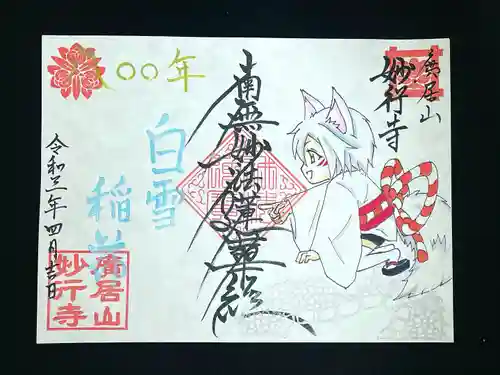 廣居山
妙行寺
南無妙法蓮華経
〇〇年
白雪
稲荷
令和三年四月吉日
廣居山
妙行寺